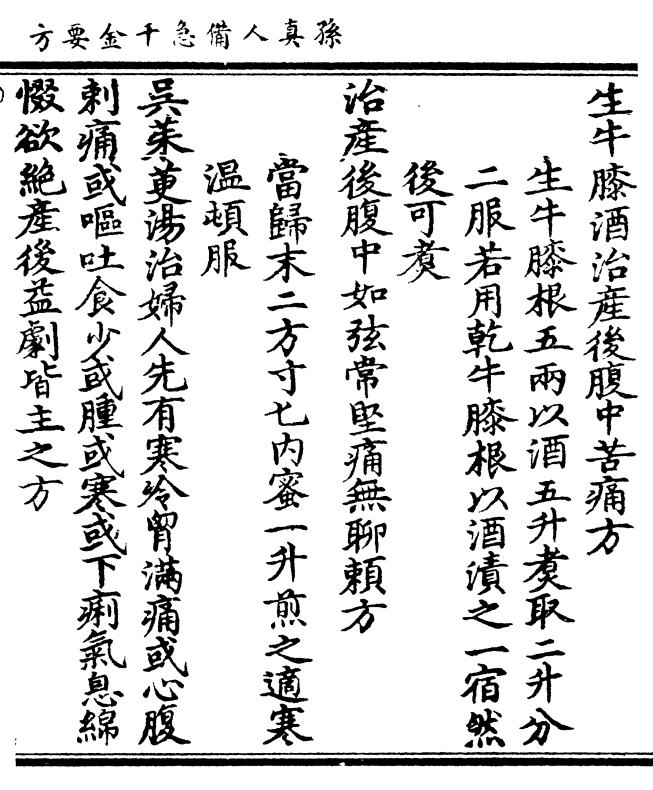 孫真人備急千金要方
生牛膝酒治產後腹中苦痛方
生牛膝根五兩以酒五升煑取二升分
二服若用乾牛膝根以酒漬之一宿然
後可煑
治產後腹中如弦常堅痛無聊頼方
當歸末二方寸匕內蜜一升煎之適寒
温頓服
吳茱萸湯治婦人先有寒冷胷滿痛或心腹
刺痛或嘔吐食少或腫或寒或下痢氣息綿
惙欲絶產後益劇皆主之方